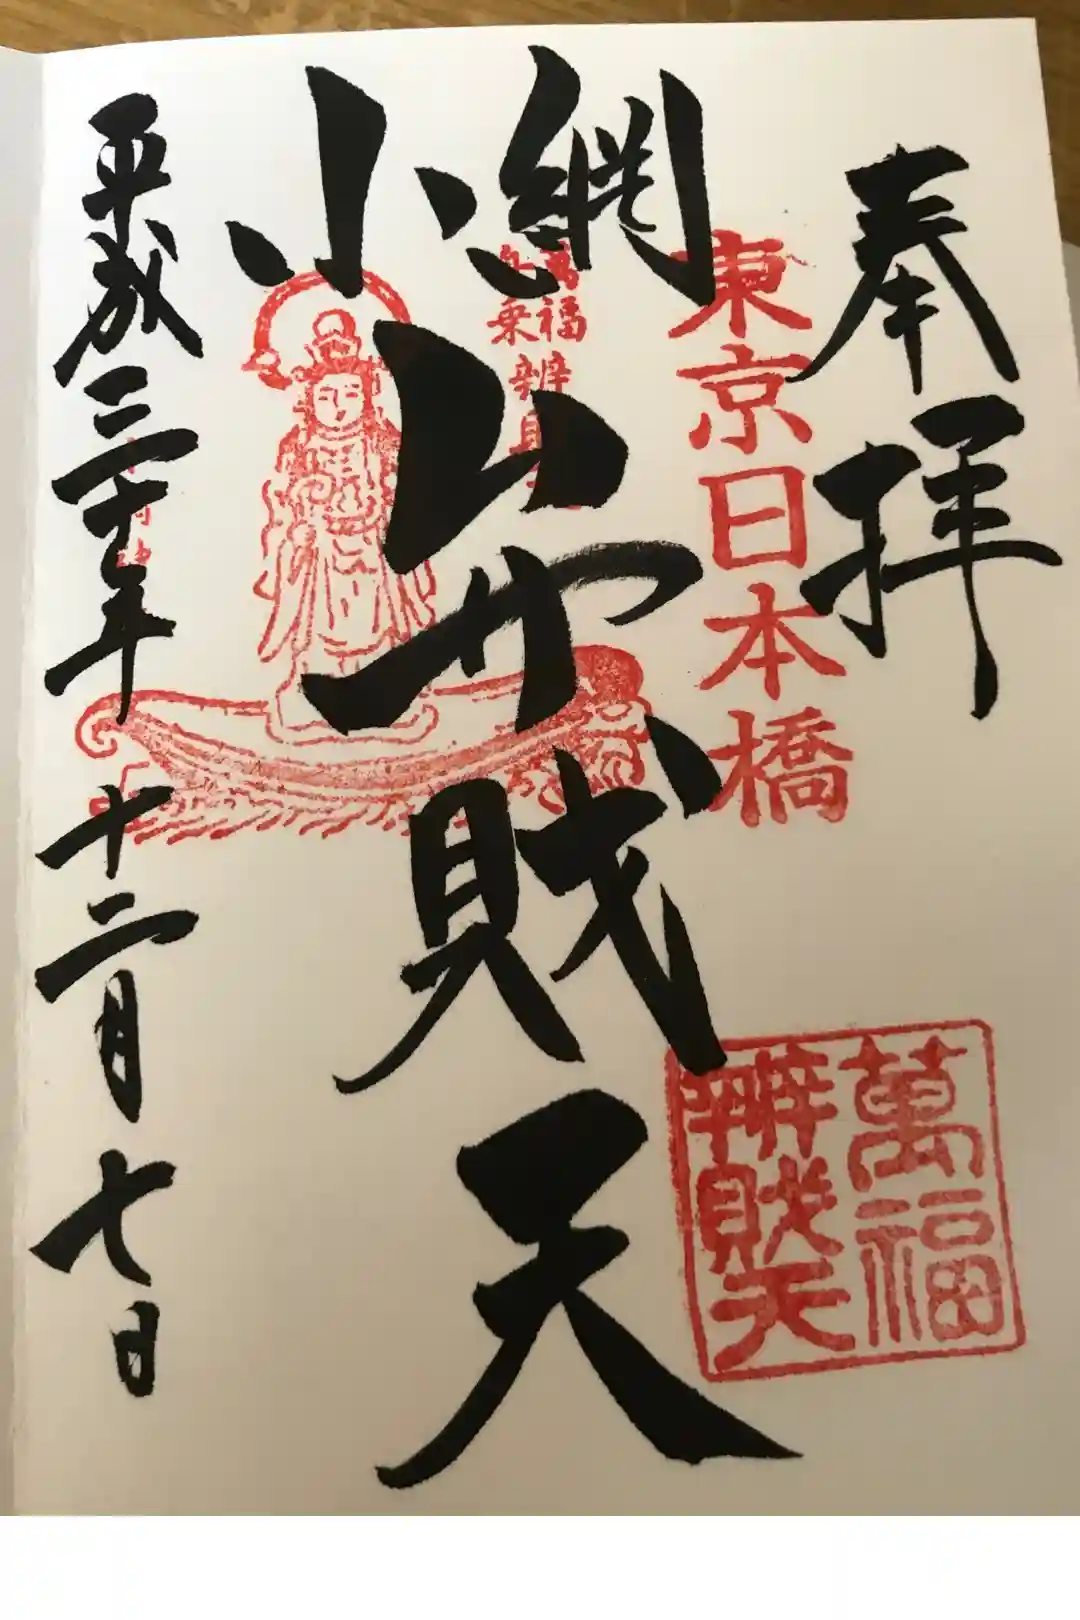 奉拝
東京日本橋
小網
弁財天
萬福
辨財天
萬福
舟乗
辨財天
平成三十年十二月七日